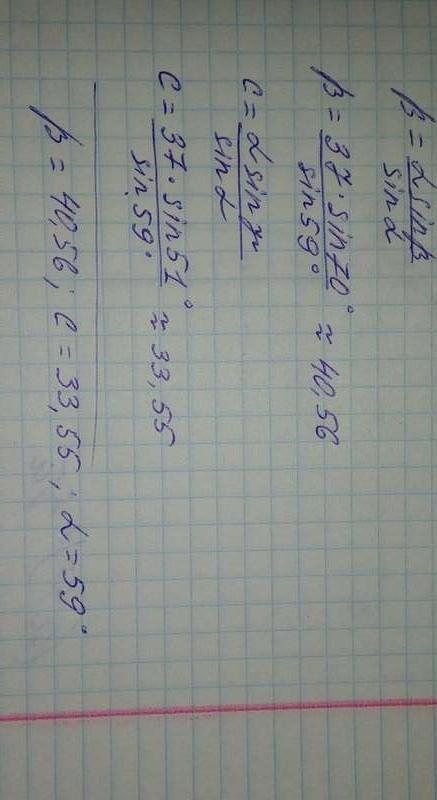 β = α sinβ / sinα
β = 37 · sin70° / sin59° ≈ 40,56
c = α sinγ / sinα
c = 37 · sin51° / sin59° ≈ 33,55
β = 40,56; c = 33,55; α = 59°